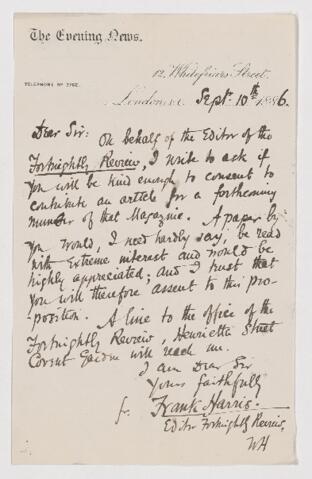 The Evening News.
12, Whitefriars Street,
TELEPHONE Nº 2702.
London E.C. Sept. 10th 1886.
Dear Sir: On behalf of the Editor of the
Fortnightly Review, I write to ask if
you will be kind enough to consent to
contribute an article for a forthcoming
number of that Magazine. A paper by
you would, I need hardly say, be read
with extreme interest and would be
highly appreciated; and I trust that
you will therefore assent to this pro-
position. A line to the office of the
Fortnightly Review, Henrietta Street
Covent Garden will reach me.
I am Dear Sir
Yours faithfully
for Frank Harris.
Editor Fortnightly Review,
WH